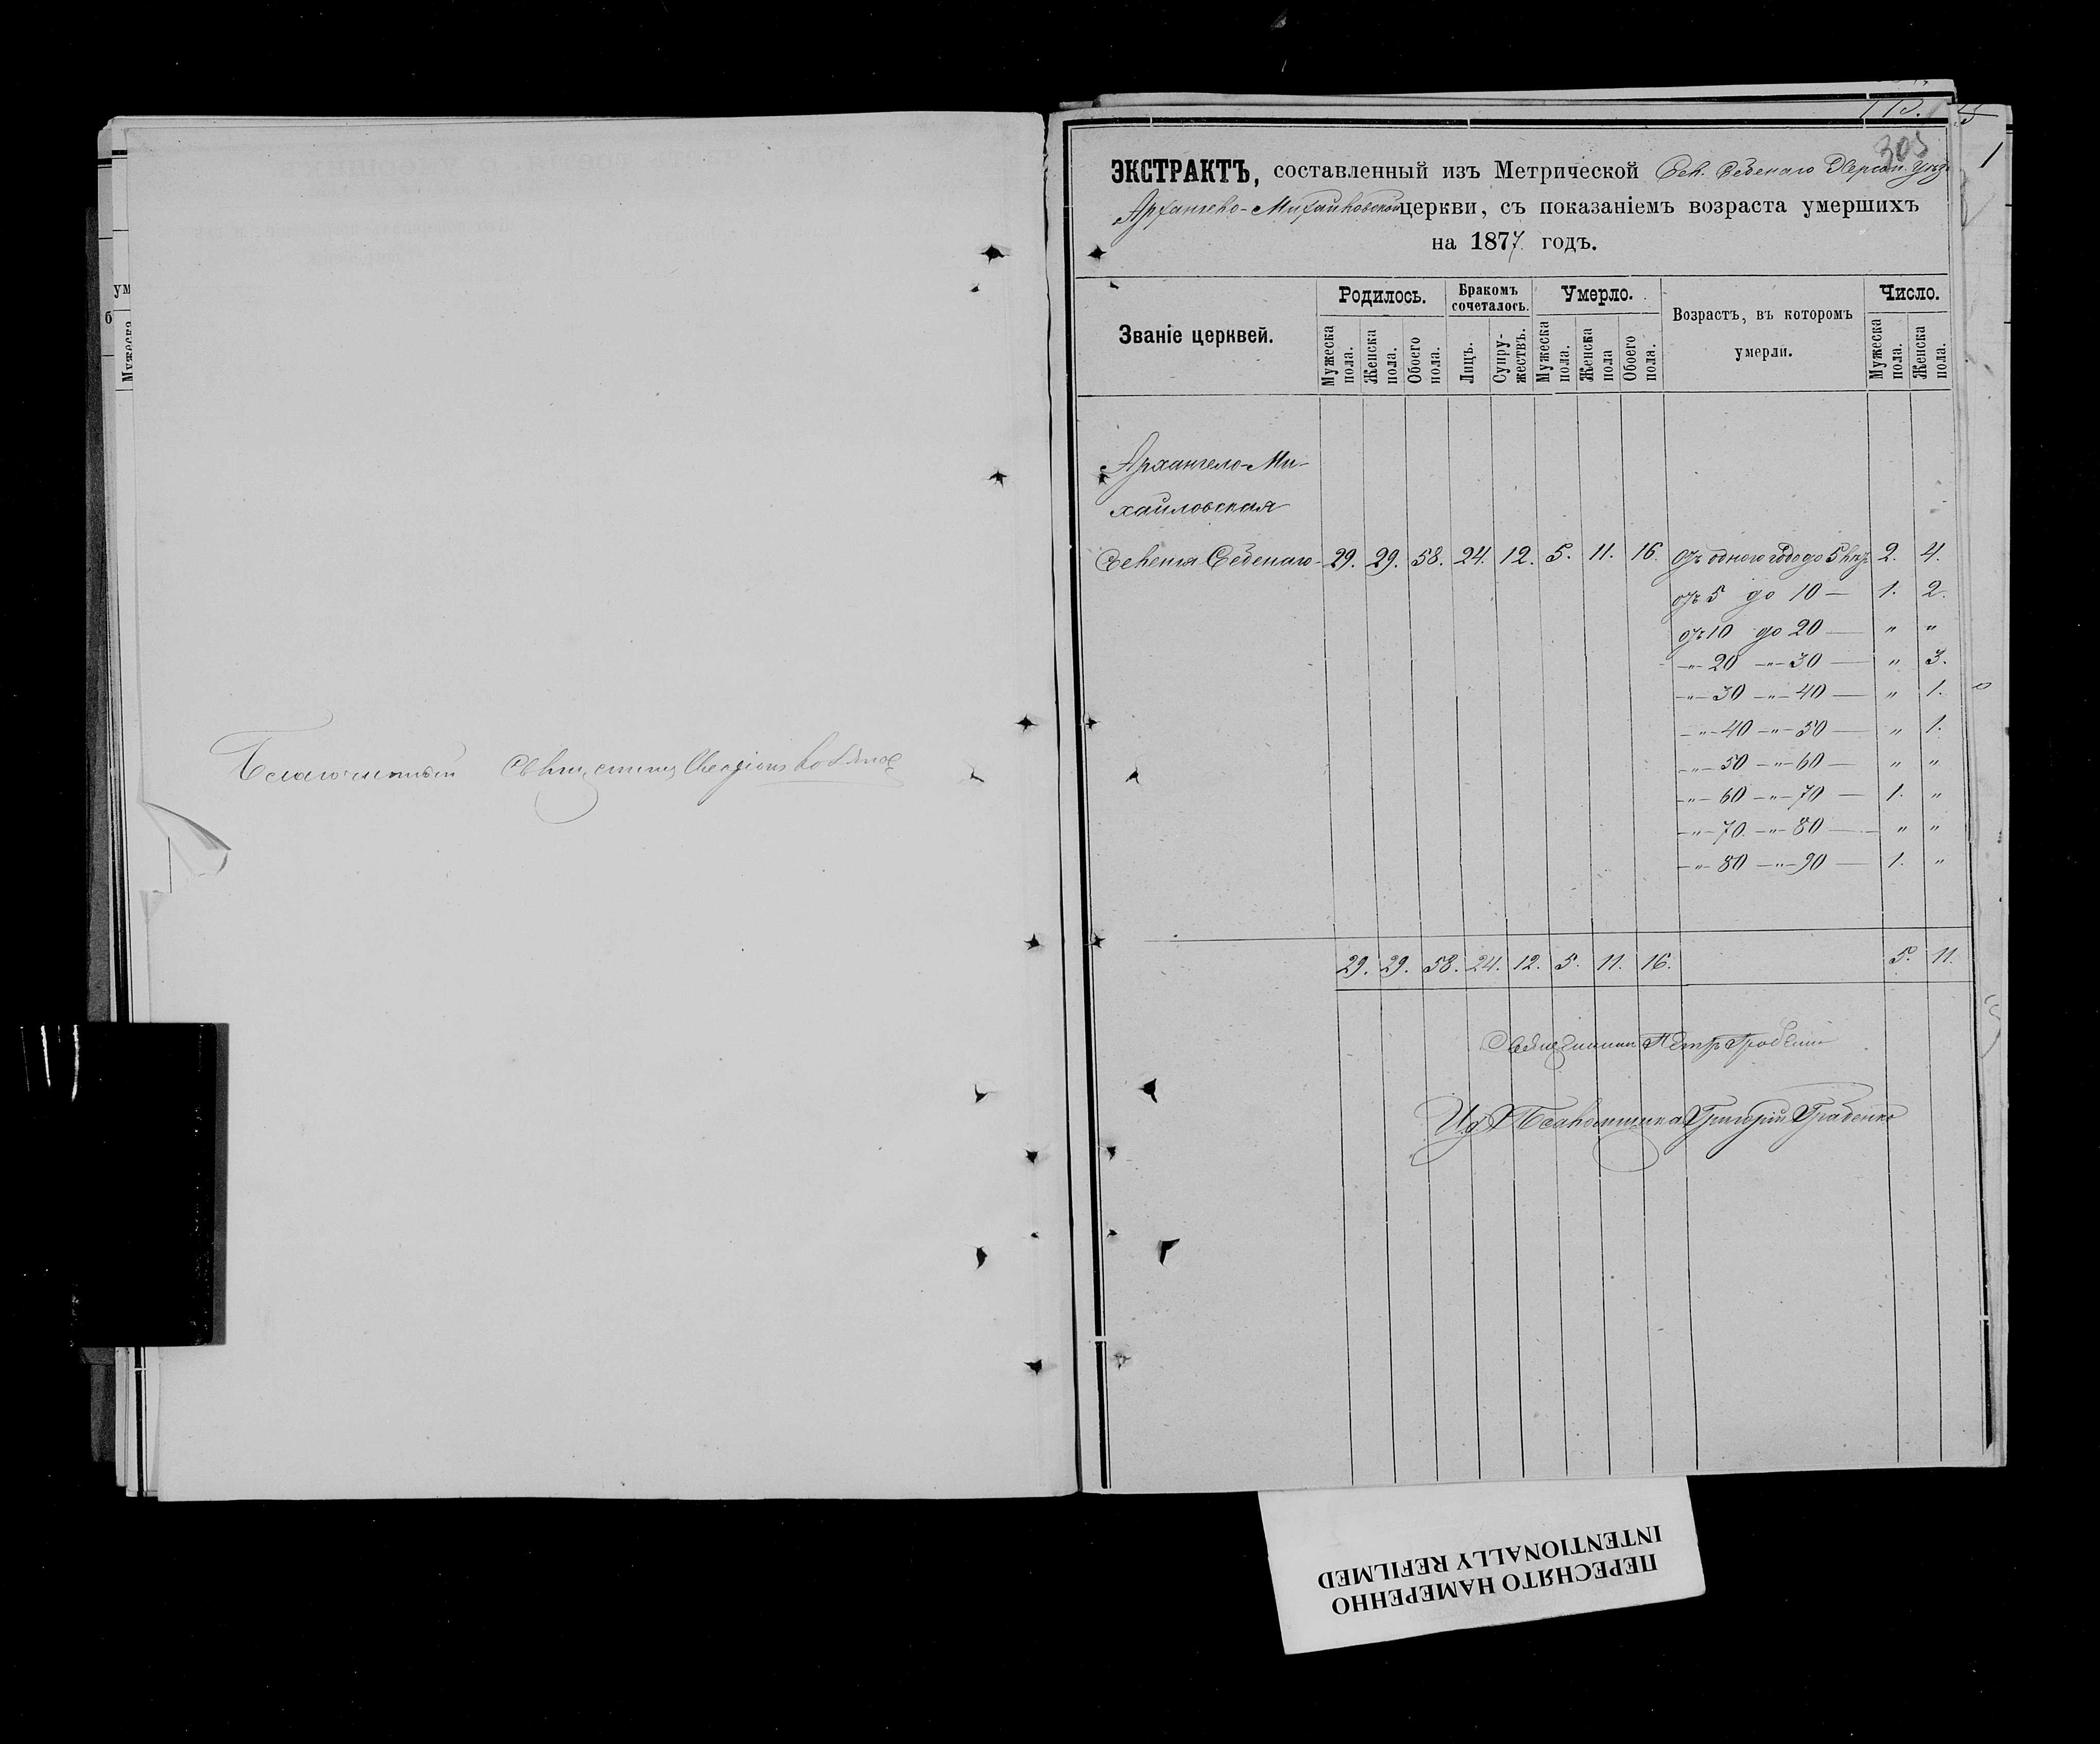 ум
б
Мужеска
Благочинный Священникъ
305
1
ЭКСТРАКТЪ, составленный изъ Метрической Сел. Себенаго Херсон. уѣз.
Архангело-Михайловской церкви, съ показаніемъ возраста умершихъ
на 1877 годъ.
Званіе церквей.
Родилось.
Бракомъ сочеталось.
Умерло.
Возрастъ, въ которомъ умерли.
Число.
Мужеска пола.
Женска пола.
Обоего пола.
Лицъ.
Супружествъ.
Мужеска пола.
Женска пола
Обоего пола.
Мужеска пола.
Женска пола.
Архангело-Ми-
хайловская
Селенія Себенаго 29. 29. 58. 24. 12. 5. 11. 16. отъ одного года до 5 лѣтъ 2. 4.
отъ 5 до 10 — 1. 2.
отъ 10 до 20 — " "
—"— 20 —"— 30 — " 3.
—"— 30 —"— 40 — " 1.
—"— 40 —"— 50 — " 1.
—"— 50 —"— 60 — " "
—"— 60 —"— 70 — 1. "
—"— 70 —"— 80 — " "
—"— 80 —"— 90 — 1. "
29. 29. 58. 24. 12. 5. 11. 16. 5. 11.
Священникъ Петръ
И. д. Псаломщика Григорій Грабенко
ПЕРЕСНЯТО НАМЕРЕННО
INTENTIONALLY REFILMED